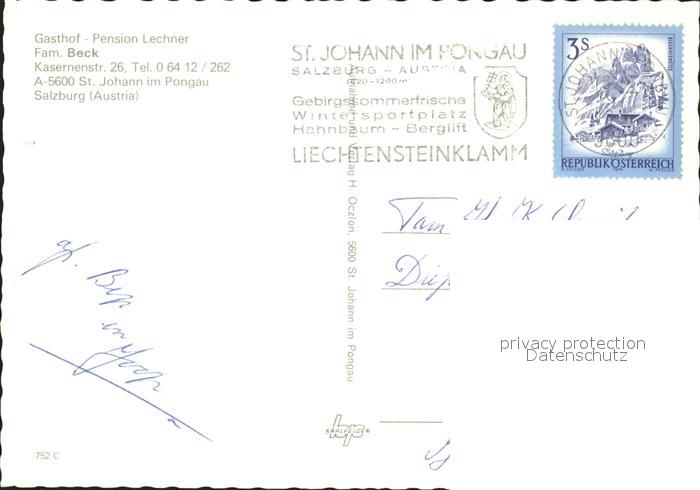 Gasthof - Pension Lechner
Fam. Beck
Kasernenstr. 26, Tel. 0 64 12 / 262
A-5600 St. Johann im Pongau
Salzburg (Austria)
ST. JOHANN IM PONGAU
SALZBURG - AUSTRIA
Gebirgssommerfrische
Wintersportplatz
Hahnbaum - Berglift
LIECHTENSTEINKLAMM
3S
ST. JOHANN
REPUBLIK ÖSTERREICH
Aufnahme und Verlag H. Oczlon, 5600 St. Johann im Pongau
Fam
privacy protection
Datenschutz
SAALFELDEN
752 C